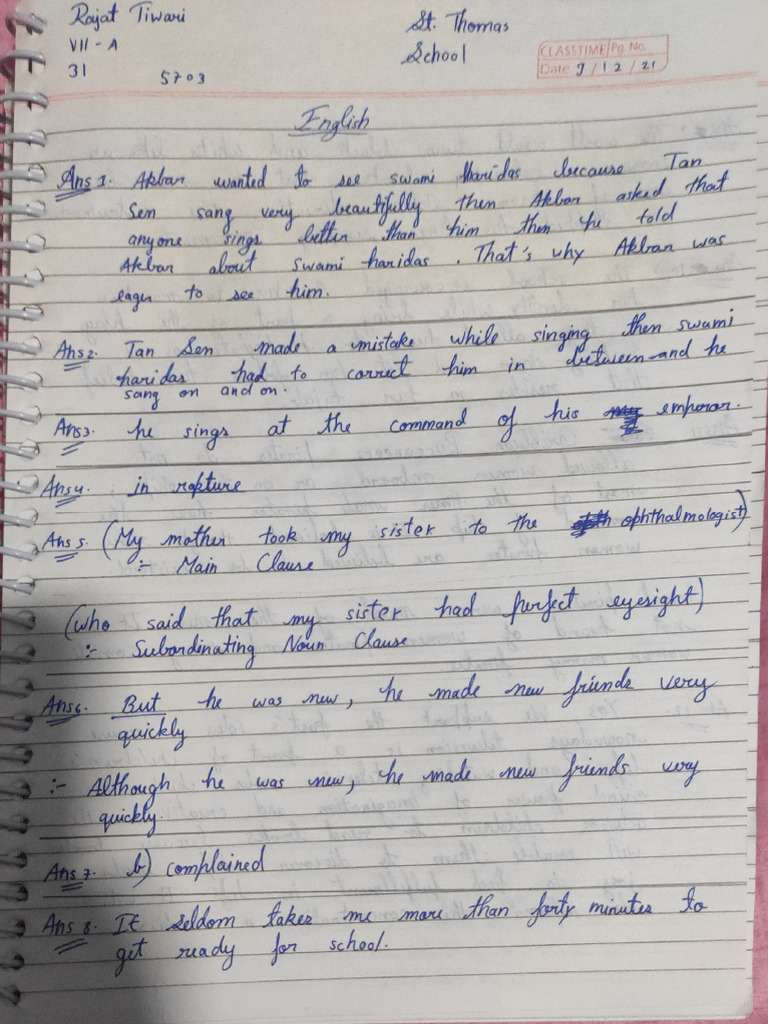 Rajat Tiwari
St. Thomas
VII - A
School
31
5703
CLASSTIME/Pg. No.
Date 9/12/21
English
Ans 1. Akbar wanted to see swami Haridas because Tan
Sen sang very beautifully then Akbar asked that
anyone sings better than him then he told
Akbar about swami haridas. That's why Akbar was
eager to see him.
Ans 2. Tan Sen made a mistake while singing then swami
haridas had to correct him in between and he
sang on and on.
Ans 3. he sings at the command of his emperor.
Ans 4. in rapture
Ans 5. (My mother took my sister to the ophthalmologist)
:- Main Clause
(who said that my sister had perfect eyesight)
:- Subordinating Noun Clause
Ans 6. But he was new, he made new friends very
quickly
:- Although he was new, he made new friends very
quickly.
Ans 7. b) complained
Ans 8. It seldom takes me more than forty minutes to
get ready for school.